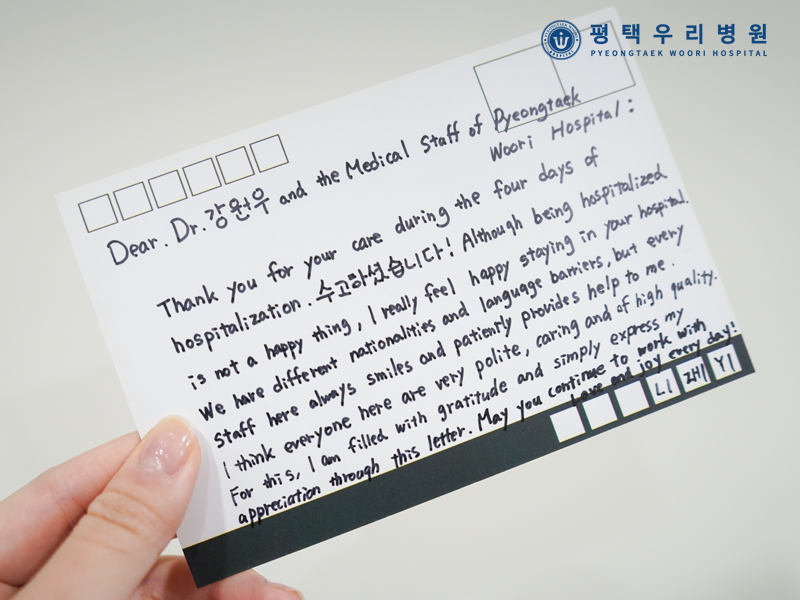 평택우리병원
PYEONGTAEK WOORI HOSPITAL
Dear. Dr. 강원우 and the Medical Staff of Pyeongtaek
Woori Hospital:
Thank you for your care during the four days of
hospitalization. 수고하셨습니다! Although being hospitalized
is not a happy thing, I really feel happy staying in your hospital.
We have different nationalities and language barriers, but every
staff here always smiles and patiently provides help to me.
I think everyone here are very polite, caring and of high quality.
For this, I am filled with gratitude and simply express my
appreciation through this letter. May you continue to work with
Love and joy every day!
LI ZHI YI